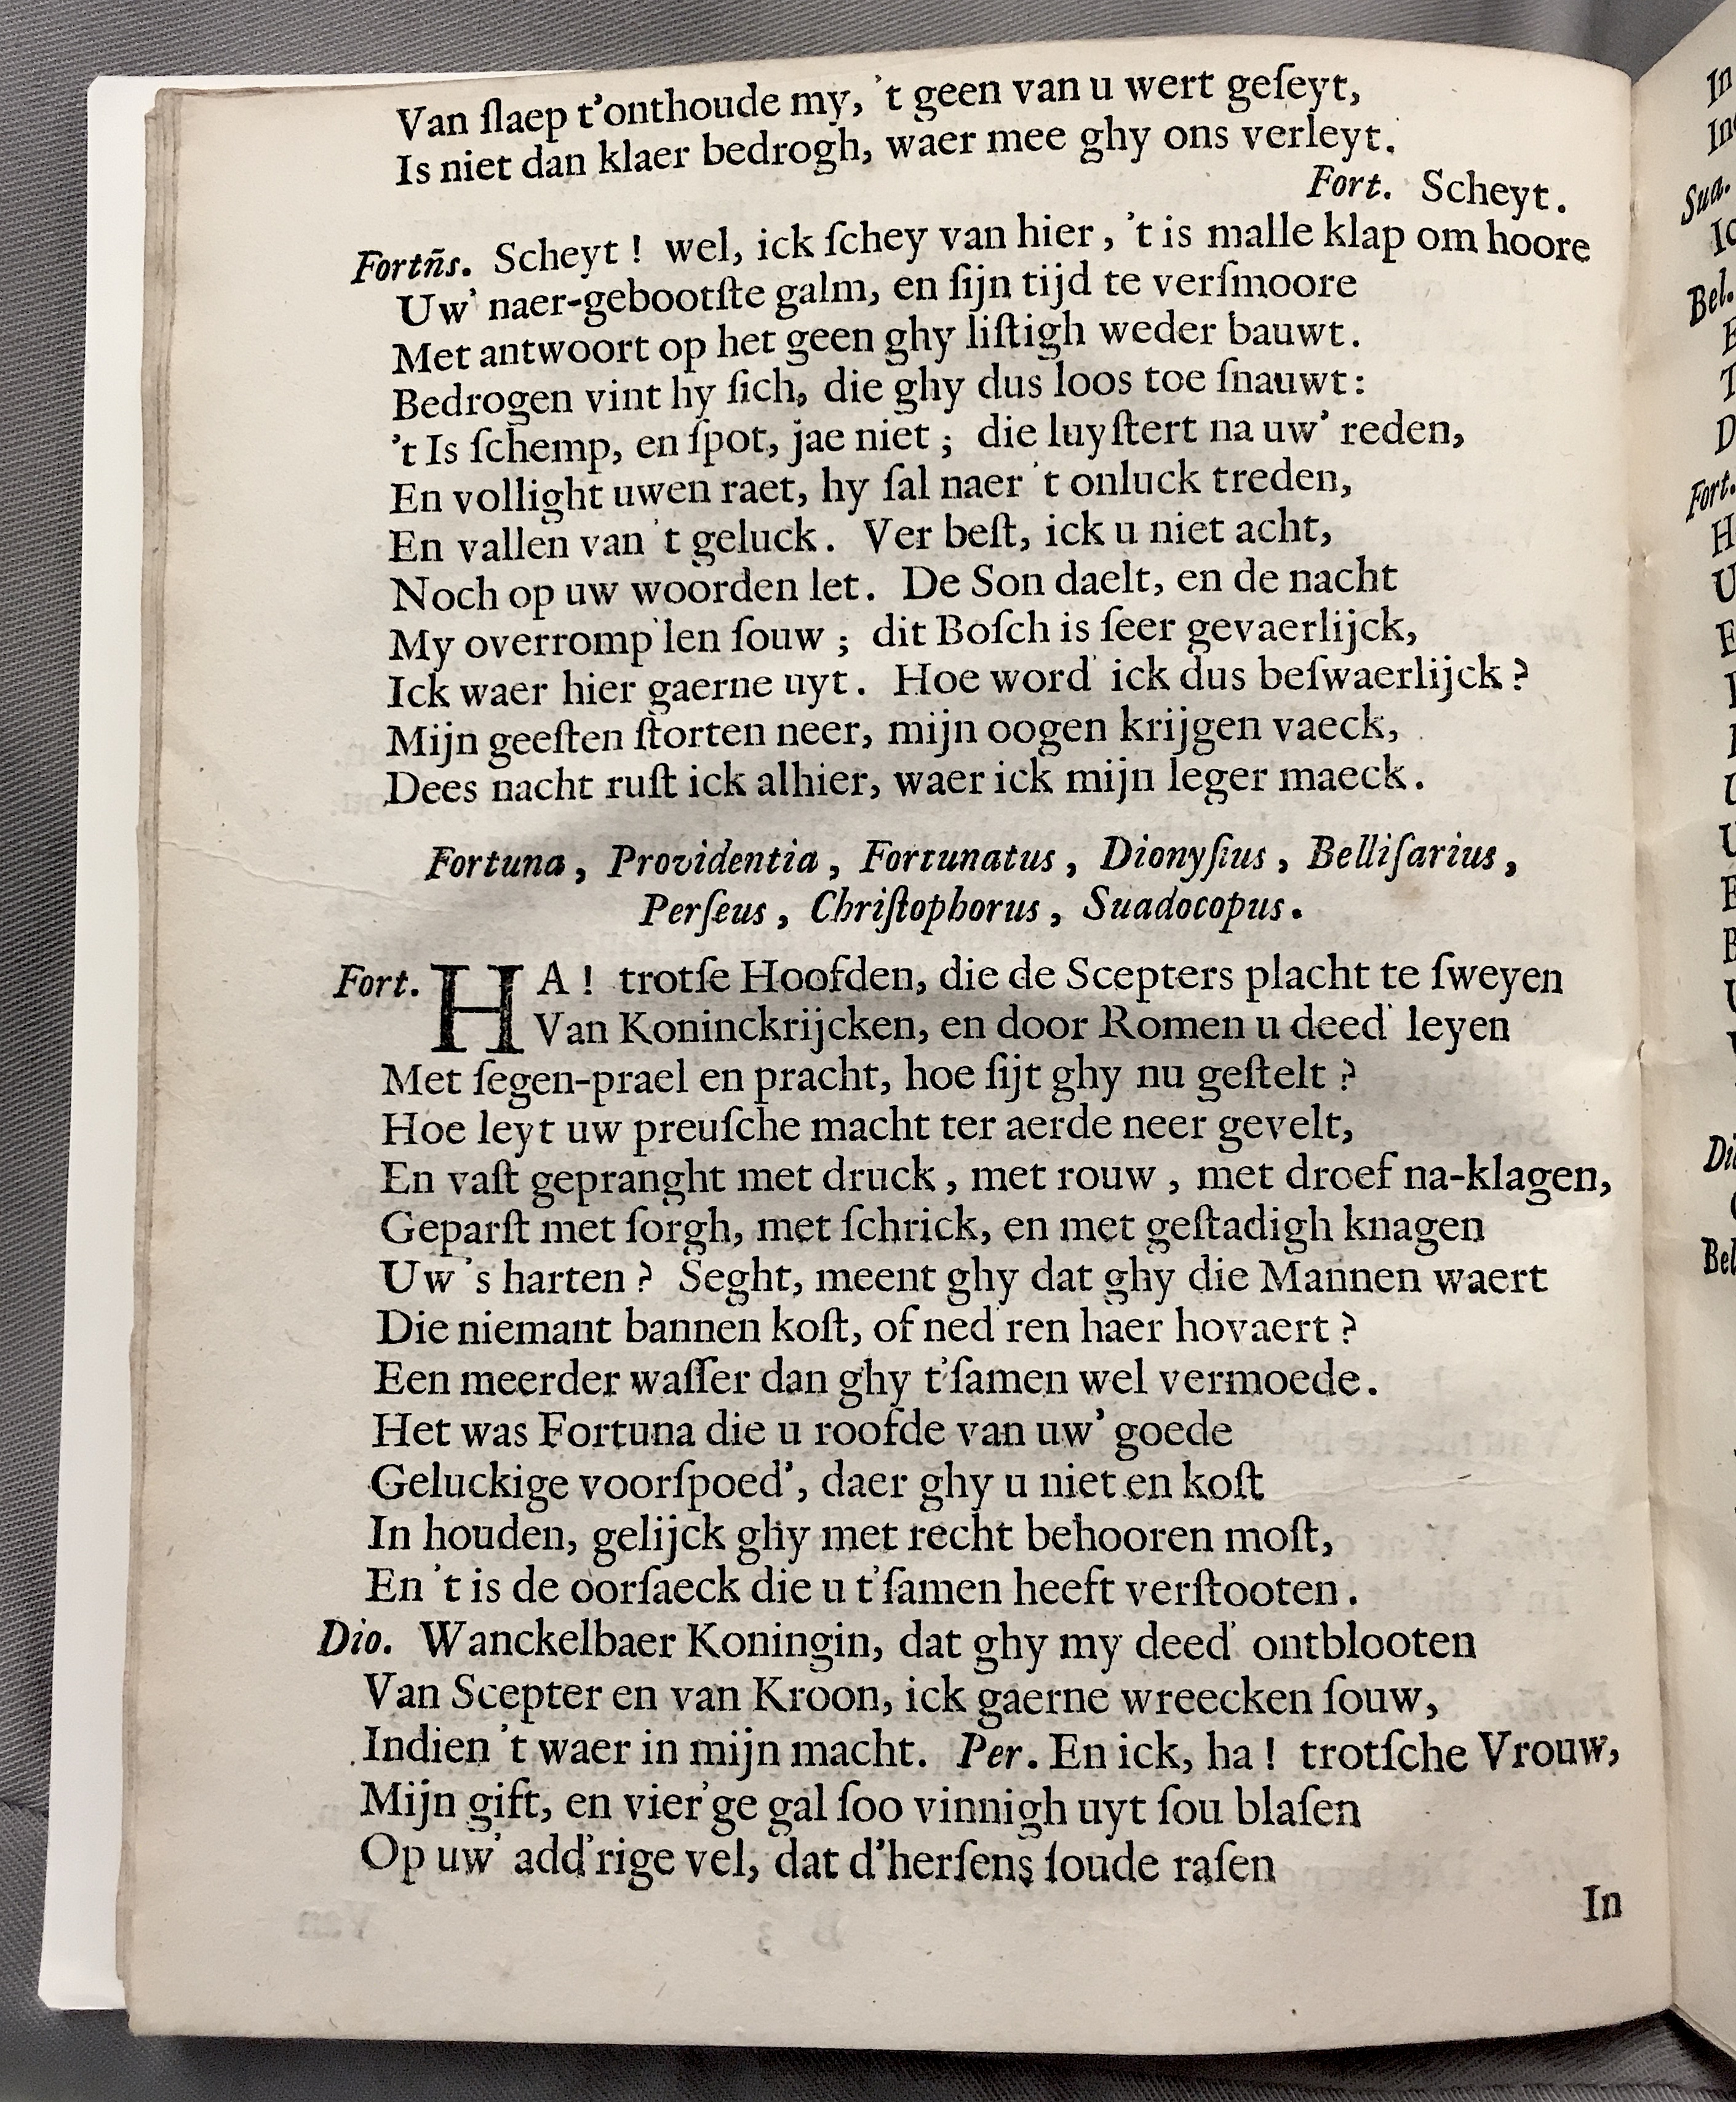 Van ſlaep t'onthoude my, 't geen van u wert geſeyt,
Is niet dan klaer bedrogh, waer mee ghy ons verleyt.
Fort. Scheyt.
Fortn̄s. Scheyt! wel, ick ſchey van hier, 't is malle klap om hoore
Uw' naer-gebootſte galm, en ſijn tijd te verſmoore
Met antwoort op het geen ghy liſtigh weder bauwt.
Bedrogen vint hy ſich, die ghy dus loos toe ſnauwt:
't Is ſchemp, en ſpot, jae niet; die luyſtert na uw' reden,
En vollight uwen raet, hy ſal naer 't onluck treden,
En vallen van 't geluck. Ver beſt, ick u niet acht,
Noch op uw woorden let. De Son daelt, en de nacht
My overromp'len ſouw; dit Boſch is ſeer gevaerlijck,
Ick waer hier gaerne uyt. Hoe word' ick dus beſwaerlijck?
Mijn geeſten ſtorten neer, mijn oogen krijgen vaeck,
Dees nacht ruſt ick alhier, waer ick mijn leger maeck.
Fortuna, Providentia, Fortunatus, Dionyſius, Belliſarius,
Perſeus, Chriſtophorus, Suadocopus.
Fort. HA! trotſe Hoofden, die de Scepters placht te ſweyen
Van Koninckrijcken, en door Romen u deed' leyen
Met ſegen-prael en pracht, hoe ſijt ghy nu geſtelt?
Hoe leyt uw preuſche macht ter aerde neer gevelt,
En vaſt gepranght met druck, met rouw, met droef na-klagen,
Geparſt met ſorgh, met ſchrick, en met geſtadigh knagen
Uw 's harten? Seght, meent ghy dat ghy die Mannen waert
Die niemant bannen koſt, of ned'ren haer hovaert?
Een meerder waſſer dan ghy t'ſamen wel vermoede.
Het was Fortuna die u roofde van uw' goede
Geluckige voorſpoed', daer ghy u niet en koſt
In houden, gelijck ghy met recht behooren moſt,
En 't is de oorſaeck die u t'ſamen heeft verſtooten.
Dio. Wanckelbaer Koningin, dat ghy my deed' ontblooten
Van Scepter en van Kroon, ick gaerne wreecken ſouw,
Indien 't waer in mijn macht. Per. En ick, ha! trotſche Vrouw,
Mijn gift, en vier'ge gal ſoo vinnigh uyt ſou blaſen
Op uw' add'rige vel, dat d'herſens ſoude raſen
In
In
Sua.
Bel.
Fort.